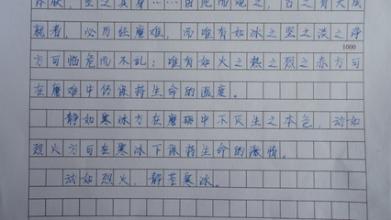 就者，必历经磨难，而唯有如冰之坚之洪之净
1000
方可临危而不乱；唯有如火之热之烈之赤方可
在磨难中仍保持生命的温度。
静如寒冰方在磨砺中不灭生之本色，动如
烈火方可在寒冰下保持生命的激情。
动如烈火，静若寒冰。